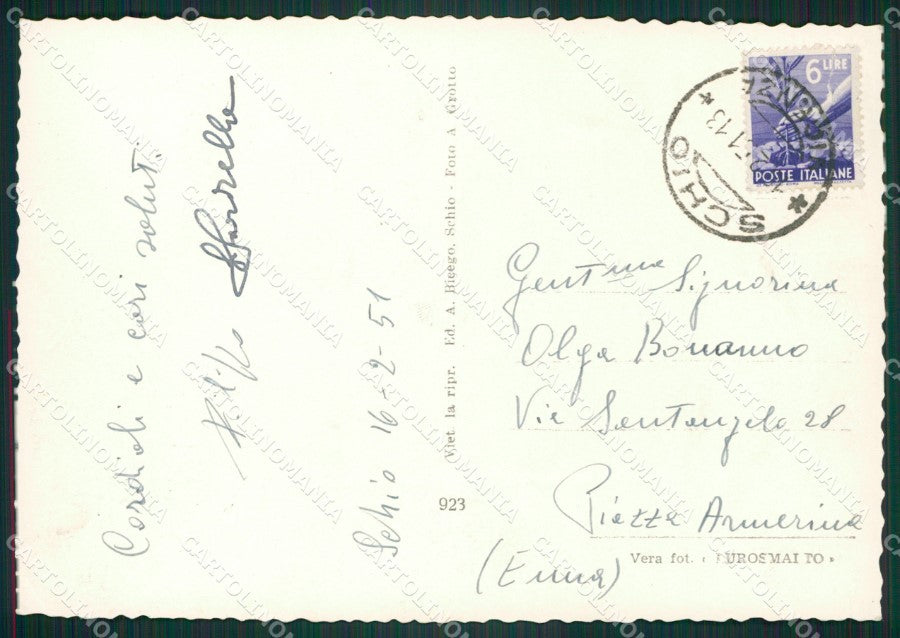 Cordiali e cari saluti.
Schio 16-2-51
Viet. la ripr. Ed. A. Bicego, Schio - Foto A. Grotto
923
6 LIRE
POSTE ITALIANE
SCHIO
Gent.ma Signorina
Olga Bonanno
Via Santangelo 28
Piazza Armerina
(Enna)
Vera fot.
CARTOLINOMANIA